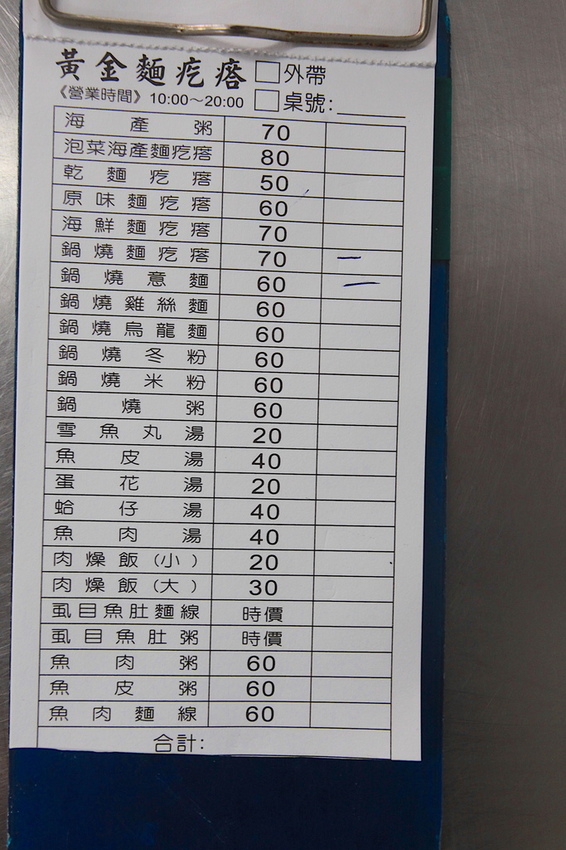 黃金麵疙瘩 □外帶
《營業時間》10:00～20:00 □桌號:______
海產粥 70
泡菜海產麵疙瘩 80
乾麵疙瘩 50
原味麵疙瘩 60
海鮮麵疙瘩 70
鍋燒麵疙瘩 70 一
鍋燒意麵 60 一
鍋燒雞絲麵 60
鍋燒烏龍麵 60
鍋燒冬粉 60
鍋燒米粉 60
鍋燒粥 60
雪魚丸湯 20
魚皮湯 40
蛋花湯 20
蛤仔湯 40
魚肉湯 40
肉燥飯(小) 20
肉燥飯(大) 30
虱目魚肚麵線 時價
虱目魚肚粥 時價
魚肉粥 60
魚皮粥 60
魚肉麵線 60
合計: